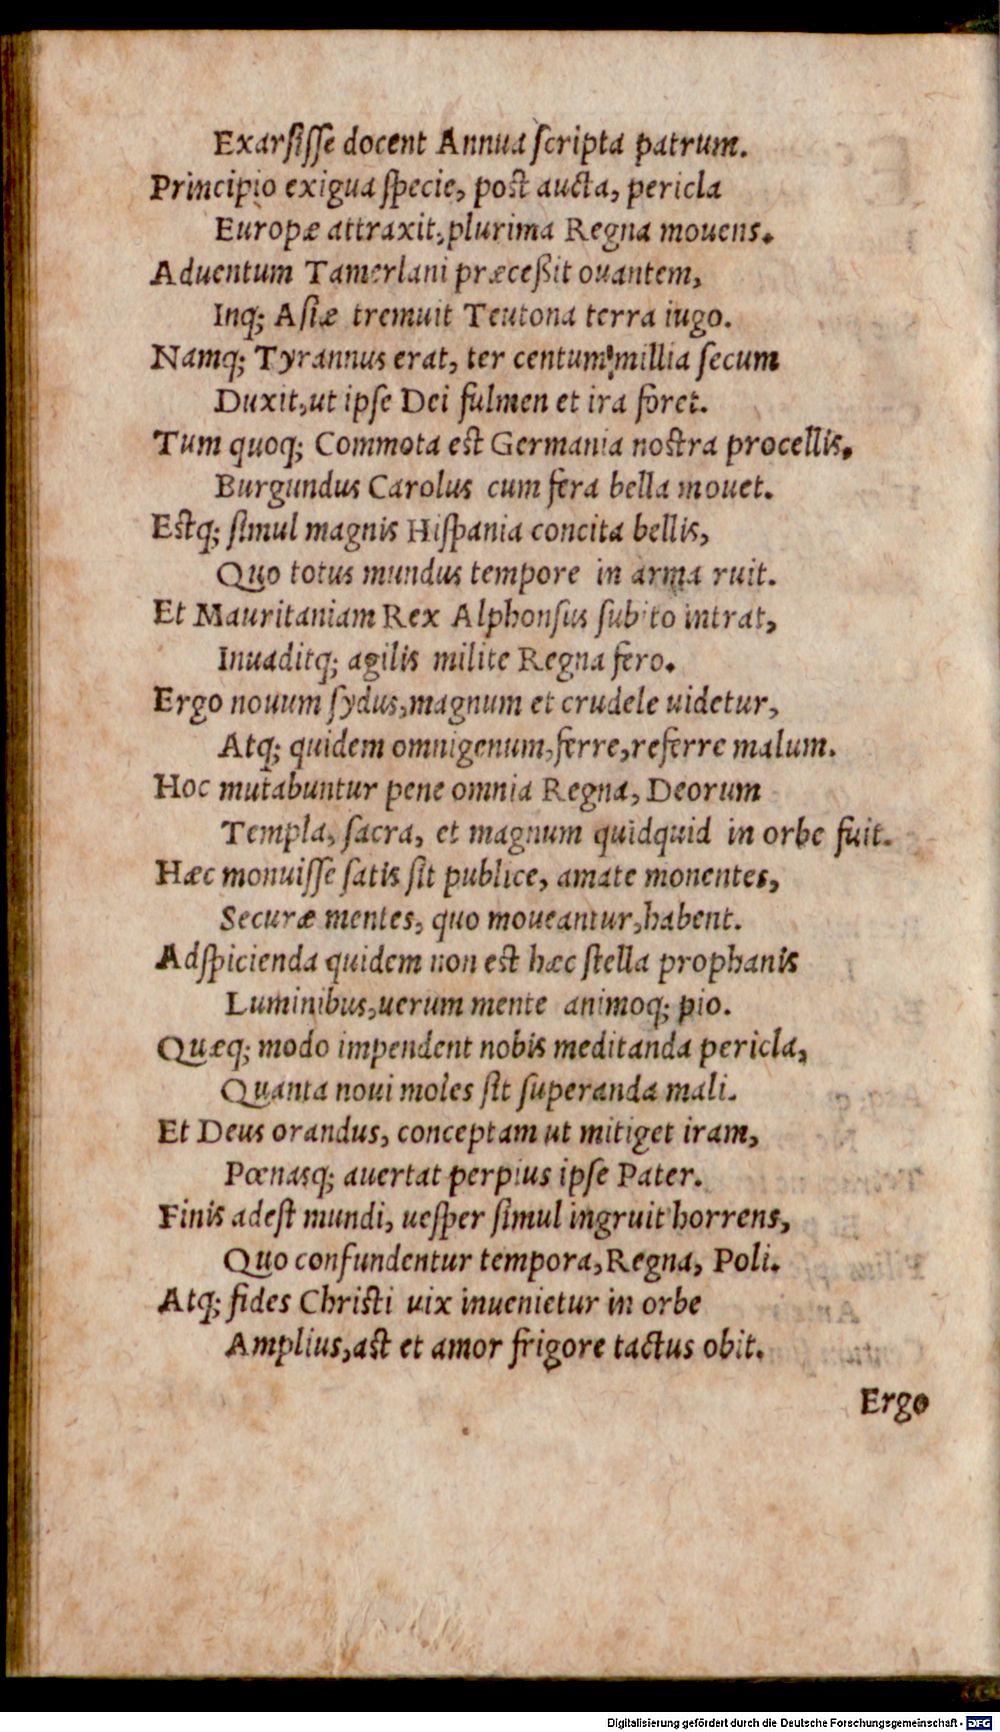 Exarſiſſe docent Annua ſcripta patrum.
Principio exigua ſpecie, poſt aucta, pericla
Europæ attraxit, plurima Regna mouens.
Aduentum Tamerlani præceßit ouantem,
Inq; Aſiæ tremuit Teutona terra iugo.
Namq; Tyrannus erat, ter centum millia ſecum
Duxit, ut ipſe Dei fulmen et ira foret.
Tum quoq; Commota eſt Germania noſtra procellis.
Burgundus Carolus cum fera bella mouet.
Eſtq; ſimul magnis Hiſpania concita bellis,
Quo totus mundus tempore in arma ruit.
Et Mauritaniam Rex Alphonſus ſubito intrat,
Inuaditq; agilis milite Regna fero.
Ergo nouum ſydus, magnum et crudele uidetur,
Atq; quidem omnigenum, ferre, referre malum.
Hoc mutabuntur pene omnia Regna, Deorum
Templa, ſacra, et magnum quidquid in orbe fuit.
Hæc monuiſſe ſatis ſit publice, amate monentes,
Securæ mentes, quo moueantur, habent.
Adſpicienda quidem non eſt hæc ſtella prophanis
Luminibus, uerum mente animoq; pio.
Quæq; modo impendent nobis meditanda pericla,
Quanta noui moles ſit ſuperanda mali.
Et Deus orandus, conceptam ut mitiget iram,
Pœnasq; auertat perpius ipſe Pater.
Finis adeſt mundi, ueſper ſimul ingruit horrens,
Quo confundentur tempora, Regna, Poli.
Atq; fides Chriſti uix inuenietur in orbe
Amplius, aſt et amor frigore tactus obit.
Ergo
Digitalisierung gefördert durch die Deutsche Forschungsgemeinschaft - DFG